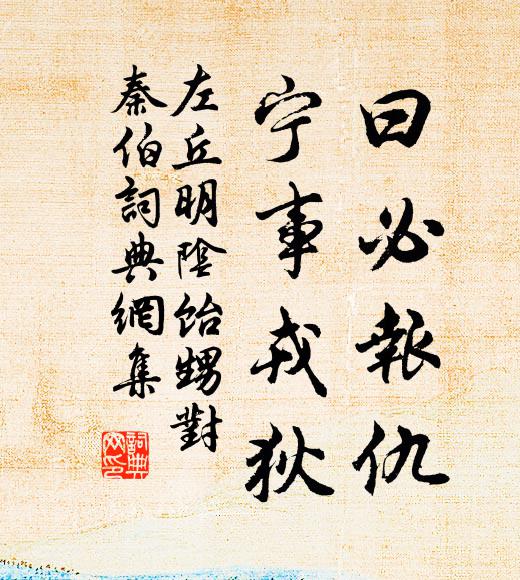 曰必報仇
宁事戎狄
左丘明陰飴甥對
秦伯詞典網集
詞典
网印